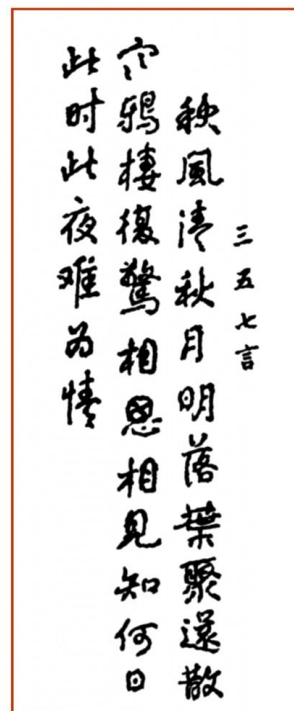 三五七言
秋風清秋月明落葉聚還散
寒鴉棲復驚相思相見知何日
此时此夜难为情